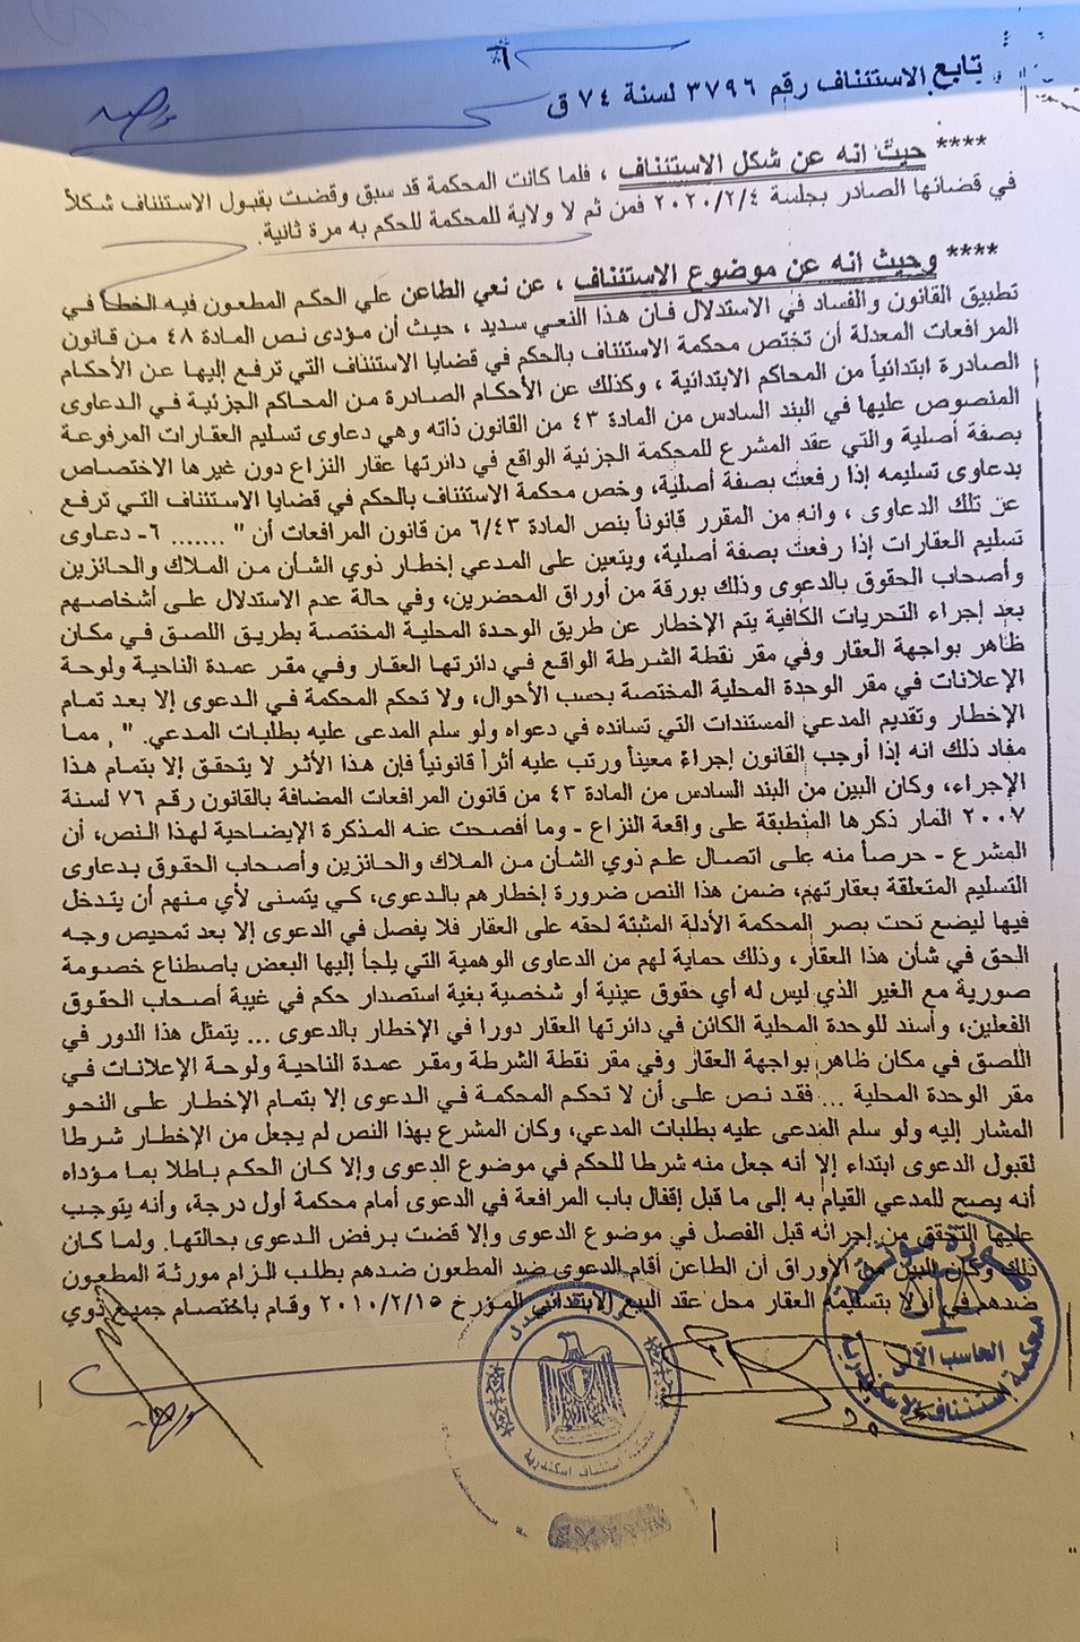 ٦
تابع الاستئناف رقم ٣٧٩٦ لسنة ٧٤ ق
**** حيث انه عن شكل الاستئناف ، فلما كانت المحكمة قد سبق وقضت بقبول الاستئناف شكلاً
في قضائها الصادر بجلسة ٢٠٢٠/٢/٤ فمن ثم لا ولاية للمحكمة للحكم به مرة ثانية.
**** وحيث انه عن موضوع الاستئناف ، عن نعي الطاعن علي الحكم المطعون فيه الخطأ في
تطبيق القانون والفساد في الاستدلال فان هذا النعي سديد ، حيث أن مؤدى نص المادة ٤٨ من قانون
المرافعات المعدلة أن تختص محكمة الاستئناف بالحكم في قضايا الاستئناف التي ترفع إليها عن الأحكام
الصادرة ابتدائياً من المحاكم الابتدائية ، وكذلك عن الأحكام الصادرة من المحاكم الجزئية في الدعاوى
المنصوص عليها في البند السادس من المادة ٤٣ من القانون ذاته وهي دعاوى تسليم العقارات المرفوعة
بصفة أصلية والتي عقد المشرع للمحكمة الجزئية الواقع في دائرتها عقار النزاع دون غيرها الاختصاص
بدعاوى تسليمه إذا رفعت بصفة أصلية، وخص محكمة الاستئناف بالحكم في قضايا الاستئناف التي ترفع
عن تلك الدعاوى ، وانه من المقرر قانوناً بنص المادة ٦/٤٣ من قانون المرافعات أن " ....... ٦- دعاوى
تسليم العقارات إذا رفعت بصفة أصلية، ويتعين على المدعي إخطار ذوي الشأن من الملاك والحائزين
وأصحاب الحقوق بالدعوى وذلك بورقة من أوراق المحضرين، وفي حالة عدم الاستدلال على أشخاصهم
بعد إجراء التحريات الكافية يتم الإخطار عن طريق الوحدة المحلية المختصة بطريق اللصق في مكان
ظاهر بواجهة العقار وفي مقر نقطة الشرطة الواقع في دائرتها العقار وفي مقر عمدة الناحية ولوحة
الإعلانات في مقر الوحدة المحلية المختصة بحسب الأحوال، ولا تحكم المحكمة في الدعوى إلا بعد تمام
الإخطار وتقديم المدعي المستندات التي تسانده في دعواه ولو سلم المدعى عليه بطلبات المدعي. " , مما
مفاد ذلك انه إذا أوجب القانون إجراءً معيناً ورتب عليه أثراً قانونياً فإن هذا الأثر لا يتحقق إلا بتمام هذا
الإجراء، وكان البين من البند السادس من المادة ٤٣ من قانون المرافعات المضافة بالقانون رقم ٧٦ لسنة
٢٠٠٧ المار ذكرها المنطبقة على واقعة النزاع - وما أفصحت عنه المذكرة الإيضاحية لهذا النص، أن
المشرع - حرصاً منه على اتصال علم ذوي الشأن من الملاك والحائزين وأصحاب الحقوق بدعاوى
التسليم المتعلقة بعقارتهم، ضمن هذا النص ضرورة إخطارهم بالدعوى، كي يتسنى لأي منهم أن يتدخل
فيها ليضع تحت بصر المحكمة الأدلة المثبتة لحقه على العقار فلا يفصل في الدعوى إلا بعد تمحيص وجه
الحق في شأن هذا العقار، وذلك حماية لهم من الدعاوى الوهمية التي يلجأ إليها البعض باصطناع خصومة
صورية مع الغير الذي ليس له أي حقوق عينية أو شخصية بغية استصدار حكم في غيبة أصحاب الحقوق
الفعلين، وأسند للوحدة المحلية الكائن في دائرتها العقار دورا في الإخطار بالدعوى ... يتمثل هذا الدور في
اللصق في مكان ظاهر بواجهة العقار وفي مقر نقطة الشرطة ومقر عمدة الناحية ولوحة الإعلانات في
مقر الوحدة المحلية ... فقد نص على أن لا تحكم المحكمة في الدعوى إلا بتمام الإخطار على النحو
المشار إليه ولو سلم المدعى عليه بطلبات المدعي، وكان المشرع بهذا النص لم يجعل من الإخطار شرطا
لقبول الدعوى ابتداء إلا أنه جعل منه شرطا للحكم في موضوع الدعوى وإلا كان الحكم باطلا بما مؤداه
أنه يصح للمدعي القيام به إلى ما قبل إقفال باب المرافعة في الدعوى أمام محكمة أول درجة، وأنه يتوجب
عليها التحقق من إجرائه قبل الفصل في موضوع الدعوى وإلا قضت برفض الدعوى بحالتها. ولما كان
ذلك وكان البين من الأوراق أن الطاعن أقام الدعوى ضد المطعون ضدهم بطلب الزام مورثة المطعون
ضدهم في أولا بتسليمه العقار محل عقد البيع الابتدائي المؤرخ ٢٠١٠/٢/١٥ وقام باختصام جميع ذوي
محكمة استئناف اسكندرية
الحاسب الآلي
محكمة إستئناف الاسكندرية